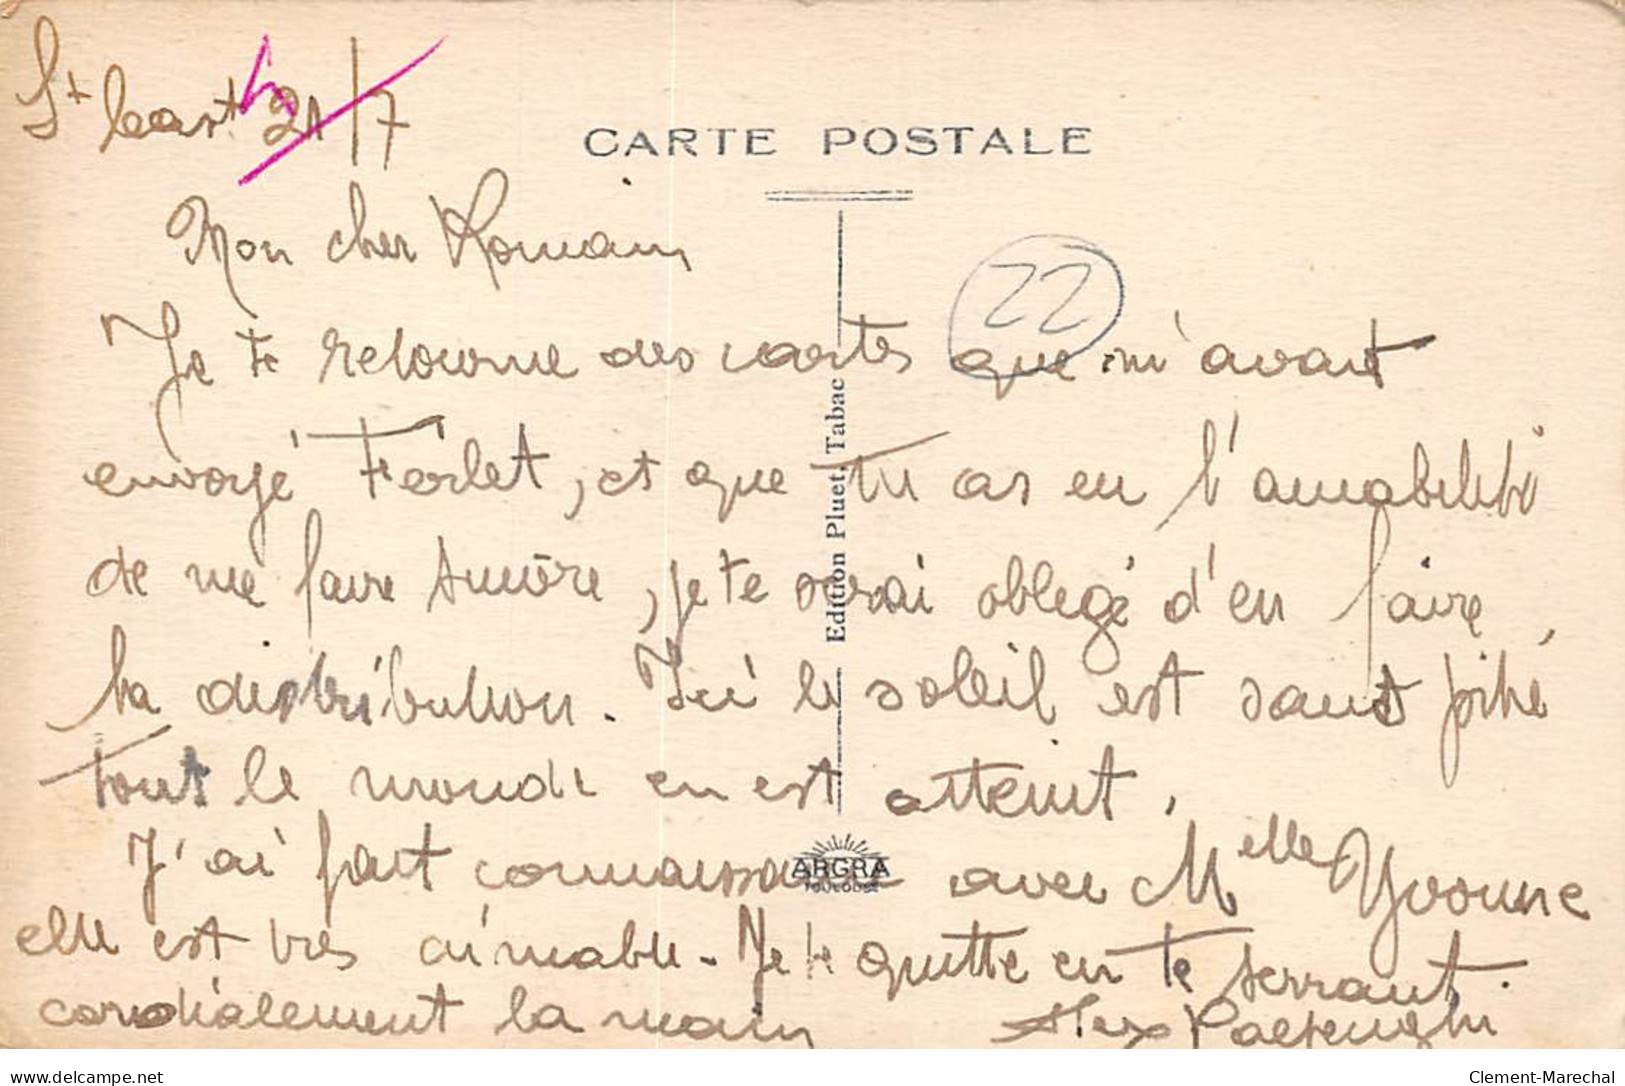 St 21/7
CARTE POSTALE
Mon cher Romain
22
Je te retourne des cartes que m'avait
envoyé Ferlet, et que tu as eu l'amabilité
de me faire suivre, je te serai obligé d'en faire
la distribution. Ici le soleil est sans pitié
tout le monde en est atteint.
J'ai fait connaissance avec Melle Yvonne
elle est très aimable. Je te quitte en te serrant
cordialement la main Alex
Edition Pluet, Tabac
ARGRA
TOULOUSE
Clement-Marechal
delcampe.net